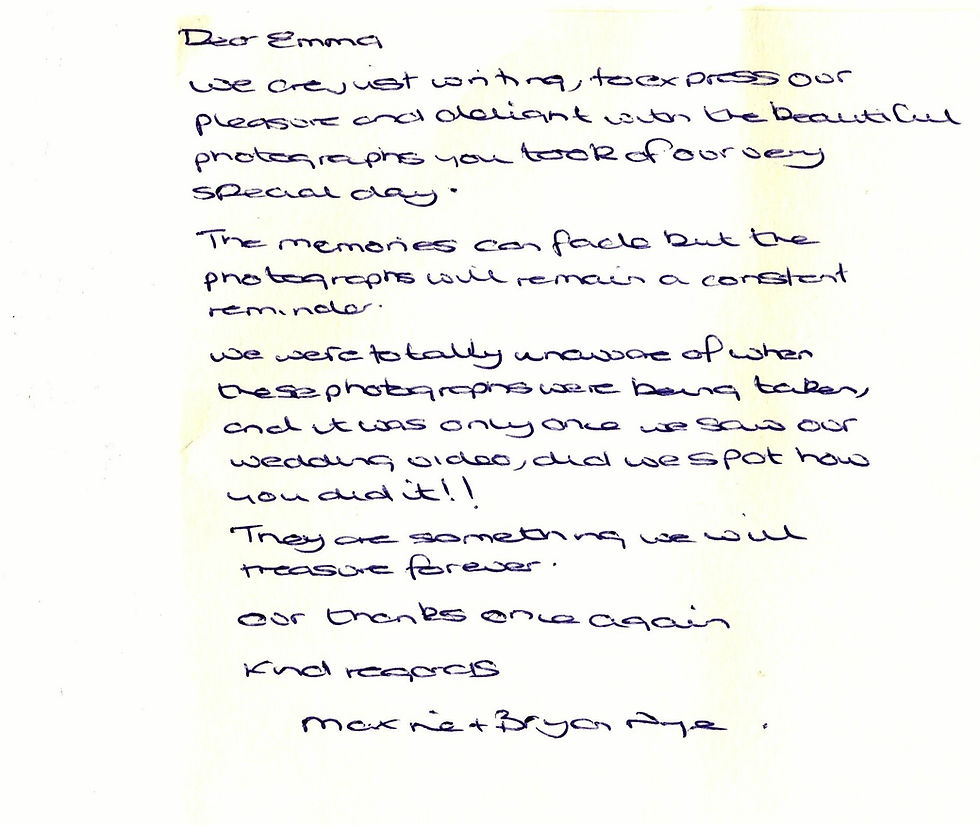 Dear Emma
We are just writing, to express our
pleasure and delight with the beautiful
photographs you took of our very
special day.
The memories can fade but the
photographs will remain a constant
reminder.
We were totally unaware of when
these photographs were being taken,
and it was only once we saw our
wedding video, did we spot how
you did it!!
They are something we will
treasure forever.
Our thanks once again
Kind regards
+ Bryan